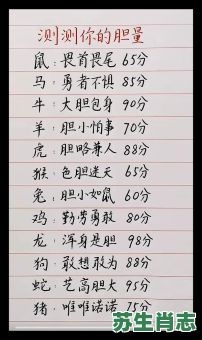 测测你的胆量
鼠：畏首畏尾 65分
马：勇者不惧 85分
牛：大胆包身 90分
羊：胆小怕事 70分
虎：胆略兼人 88分
猴：色胆迷天 65分
兔：胆小如鼠 60分
鸡：勤劳勇敢 80分
龙：浑身是胆 98分
狗：敢想敢为 88分
蛇：艺高胆大 95分
猪：唯唯诺诺 75分
苏生肖志